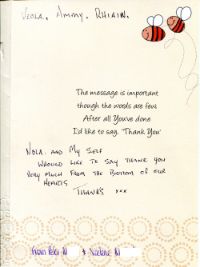 Veola, Ammy, RHIAIN.
The message is important
though the words are few
After all You've done
I'd like to say, 'Thank You'
NOLA. AND My SELF
WHOULD LIKE TO SAY THANK YOU
VERY MUCH FROM THE BOTTOM OF OUR
HEARTS
THANKS xxx
From Peter N & N